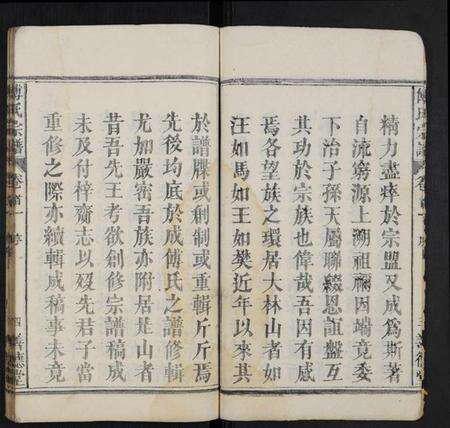 精力盡瘁於宗盟又成爲斯著
自流窮源上溯祖禰因端竟委
下治子孫天屬聯綴恩誼盤互
其功於宗族也偉哉吾因有感
焉各望族之環居大林山者如
汪如馬如王如樊近年以來其
於譜牒或創制或重輯斤斤焉
先後均底於成傅氏之譜修輯
尤加嚴密吾族亦附居是山者
昔吾先王考欲創修宗譜稿成
未及付梓齎志以歿先君子當
重修之際亦續輯成稿事未竟
傅氏宗譜 卷首一 四 善德堂